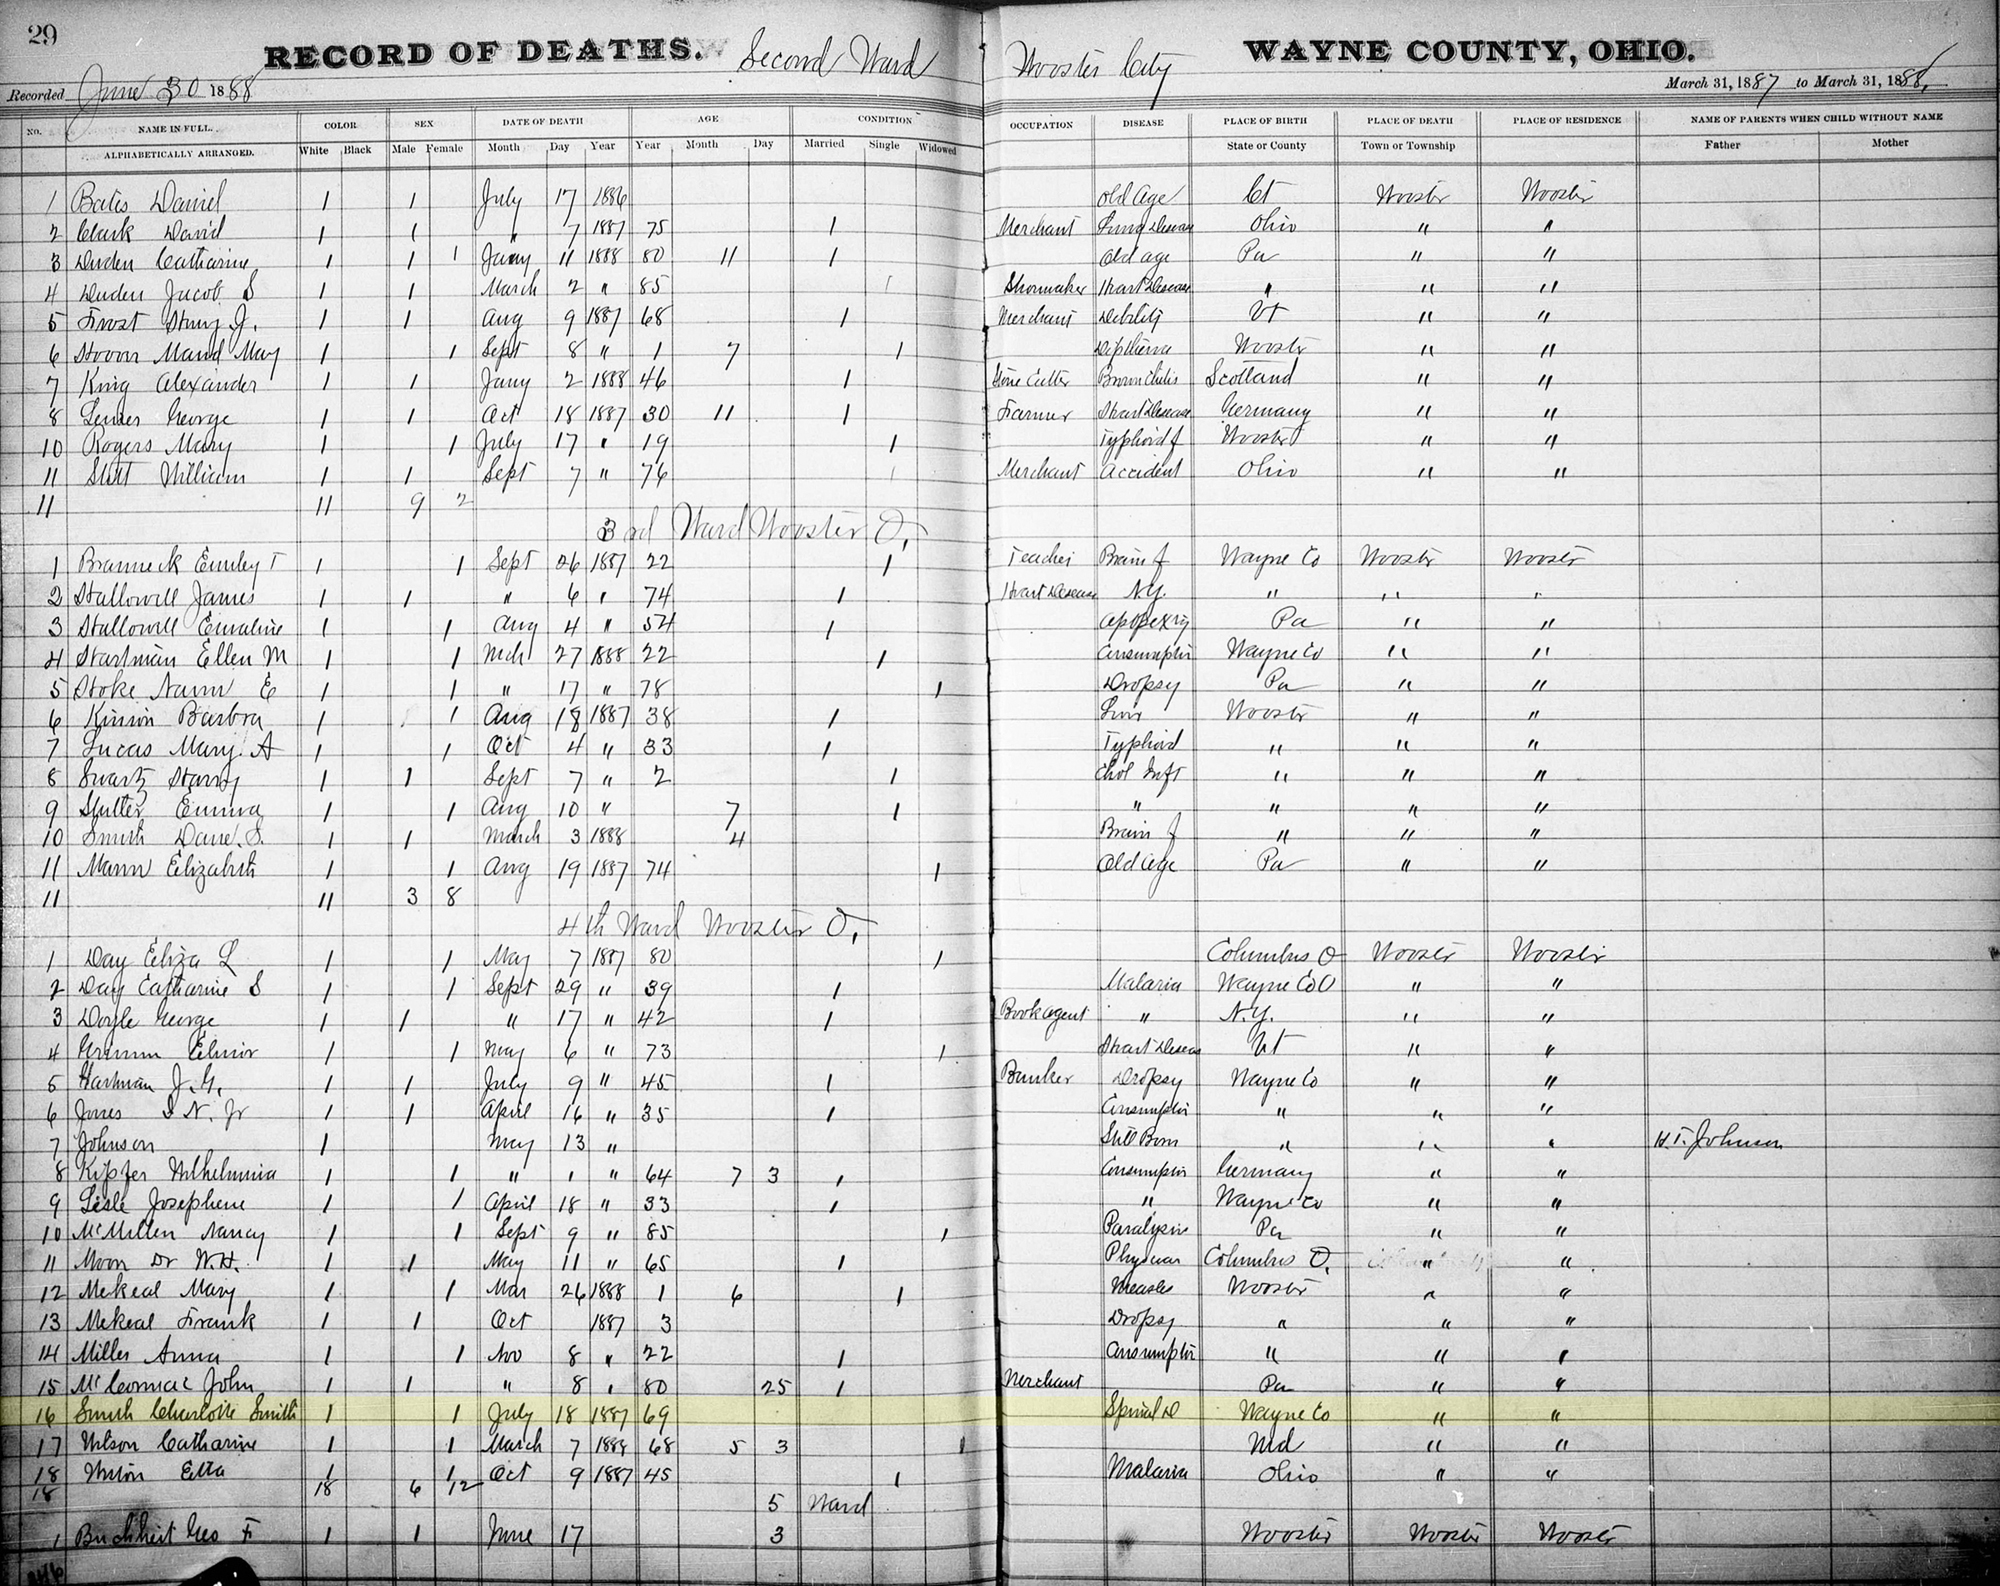 29
RECORD OF DEATHS. Second Ward Wooster City WAYNE COUNTY, OHIO.
Recorded June 30 1888 March 31, 1887 to March 31, 1888.
NO. NAME IN FULL. COLOR SEX DATE OF DEATH AGE CONDITION OCCUPATION DISEASE PLACE OF BIRTH PLACE OF DEATH PLACE OF RESIDENCE NAME OF PARENTS WHEN CHILD WITHOUT NAME
ALPHABETICALLY ARRANGED. White Black Male Female Month Day Year Year Month Day Married Single Widowed State or County Town or Township Father Mother
1 Bates Daniel 1 1 July 17 1886 Old Age Ct Wooster Wooster
2 Clark David 1 1 " 7 1887 75 1 Merchant Lung Disease Ohio " "
3 Duden Catharine 1 1 1 Jany 11 1888 80 11 1 Old age Pa " "
4 Duden Jacob S 1 1 March 2 " 85 1 Shomaker Heart Disease " " "
5 Frost Henry J. 1 1 Aug 9 1887 68 1 Merchant Debility Vt " "
6 Maud May 1 1 Sept 8 " 1 7 1 Diptheria Wooster " "
7 King Alexander 1 1 Jany 2 1888 46 1 Stone Cutter Scotland " "
8 George 1 1 Oct 18 1887 30 11 1 Farmer Heart Disease Germany " "
10 Rogers Mary 1 1 July 17 " 19 1 Typhoid f Wooster " "
11 Stitt William 1 1 Sept 7 " 76 1 Merchant Accident Ohio " "
11 11 9 2
3rd Ward Wooster O,
1 1 1 Sept 26 1887 22 1 Teacher Brain f Wayne Co Wooster Wooster
2 Hallowell James 1 1 " 6 " 74 1 Heart Disease N.Y. " " "
3 Hallowell Emaline 1 1 Aug 4 " 54 1 Apopexy Pa " "
4 Hartman Ellen M 1 1 Mch 27 1888 22 1 Consumptin Wayne Co " "
5 Hoke Nann E 1 1 " 17 " 78 1 Dropsy Pa " "
6 Barbra 1 1 Aug 18 1887 38 1 Liver Wooster " "
7 Lucas Mary A 1 1 Oct 4 " 33 1 Typhoid " " "
8 Swartz Harry 1 1 Sept 7 " 2 1 Chol Inft " " "
9 Emma 1 1 Aug 10 " 7 1 " " " "
10 Smith Dane. S. 1 1 March 3 1888 4 Brain f " " "
11 Mann Elizabeth 1 1 Aug 19 1887 74 1 Old age Pa " "
11 11 3 8
4th Ward Wooster O,
1 Day Eliza L 1 1 May 7 1887 80 1 Columbus O Wooster Wooster
2 Day Catharine S 1 1 Sept 29 " 39 1 Malaria Wayne Co O " "
3 Doyle George 1 1 " 17 " 42 1 Book agent " N.Y. " "
4 Elinor 1 1 May 6 " 73 1 Heart Diseas Vt " "
5 Hartman J. G. 1 1 July 9 " 45 1 Banker Dropsy Wayne Co " "
6 Jones I N. Jr 1 1 April 16 " 35 1 Consumptin " " "
7 Johnson 1 May 13 " Still Born " " " H. T. Johnson
8 Kipfer Wilhelmina 1 1 " 1 " 64 7 3 1 Consumptin Germany " "
9 Lisle Josephene 1 1 April 18 " 33 1 " Wayne Co " "
10 McMillen Nancy 1 1 Sept 9 " 85 1 Paralysis Pa " "
11 Moon Dr W. H. 1 1 May 11 " 65 1 Physician Columbus O, " "
12 McKeal Mary 1 1 Mar 26 1888 1 6 1 Measles Wooster " "
13 McKeal Frank 1 1 Oct 1887 3 Dropsy " " "
14 Miller Anna 1 1 Nov 8 " 22 1 Consumptin " " "
15 McCormac John 1 1 " 8 " 80 25 1 Merchant Pa " "
16 Smith Charlotte Smith 1 1 July 18 1887 69 Spinal D Wayne Co " "
17 Wilson Catharine 1 1 March 7 1888 68 5 3 1 Md " "
18 Etta 1 1 Oct 9 1887 45 1 Malaria Ohio " "
18 18 6 12
5 Ward
1 Buchheit Geo F 1 1 June 17 3 Wooster Wooster Wooster